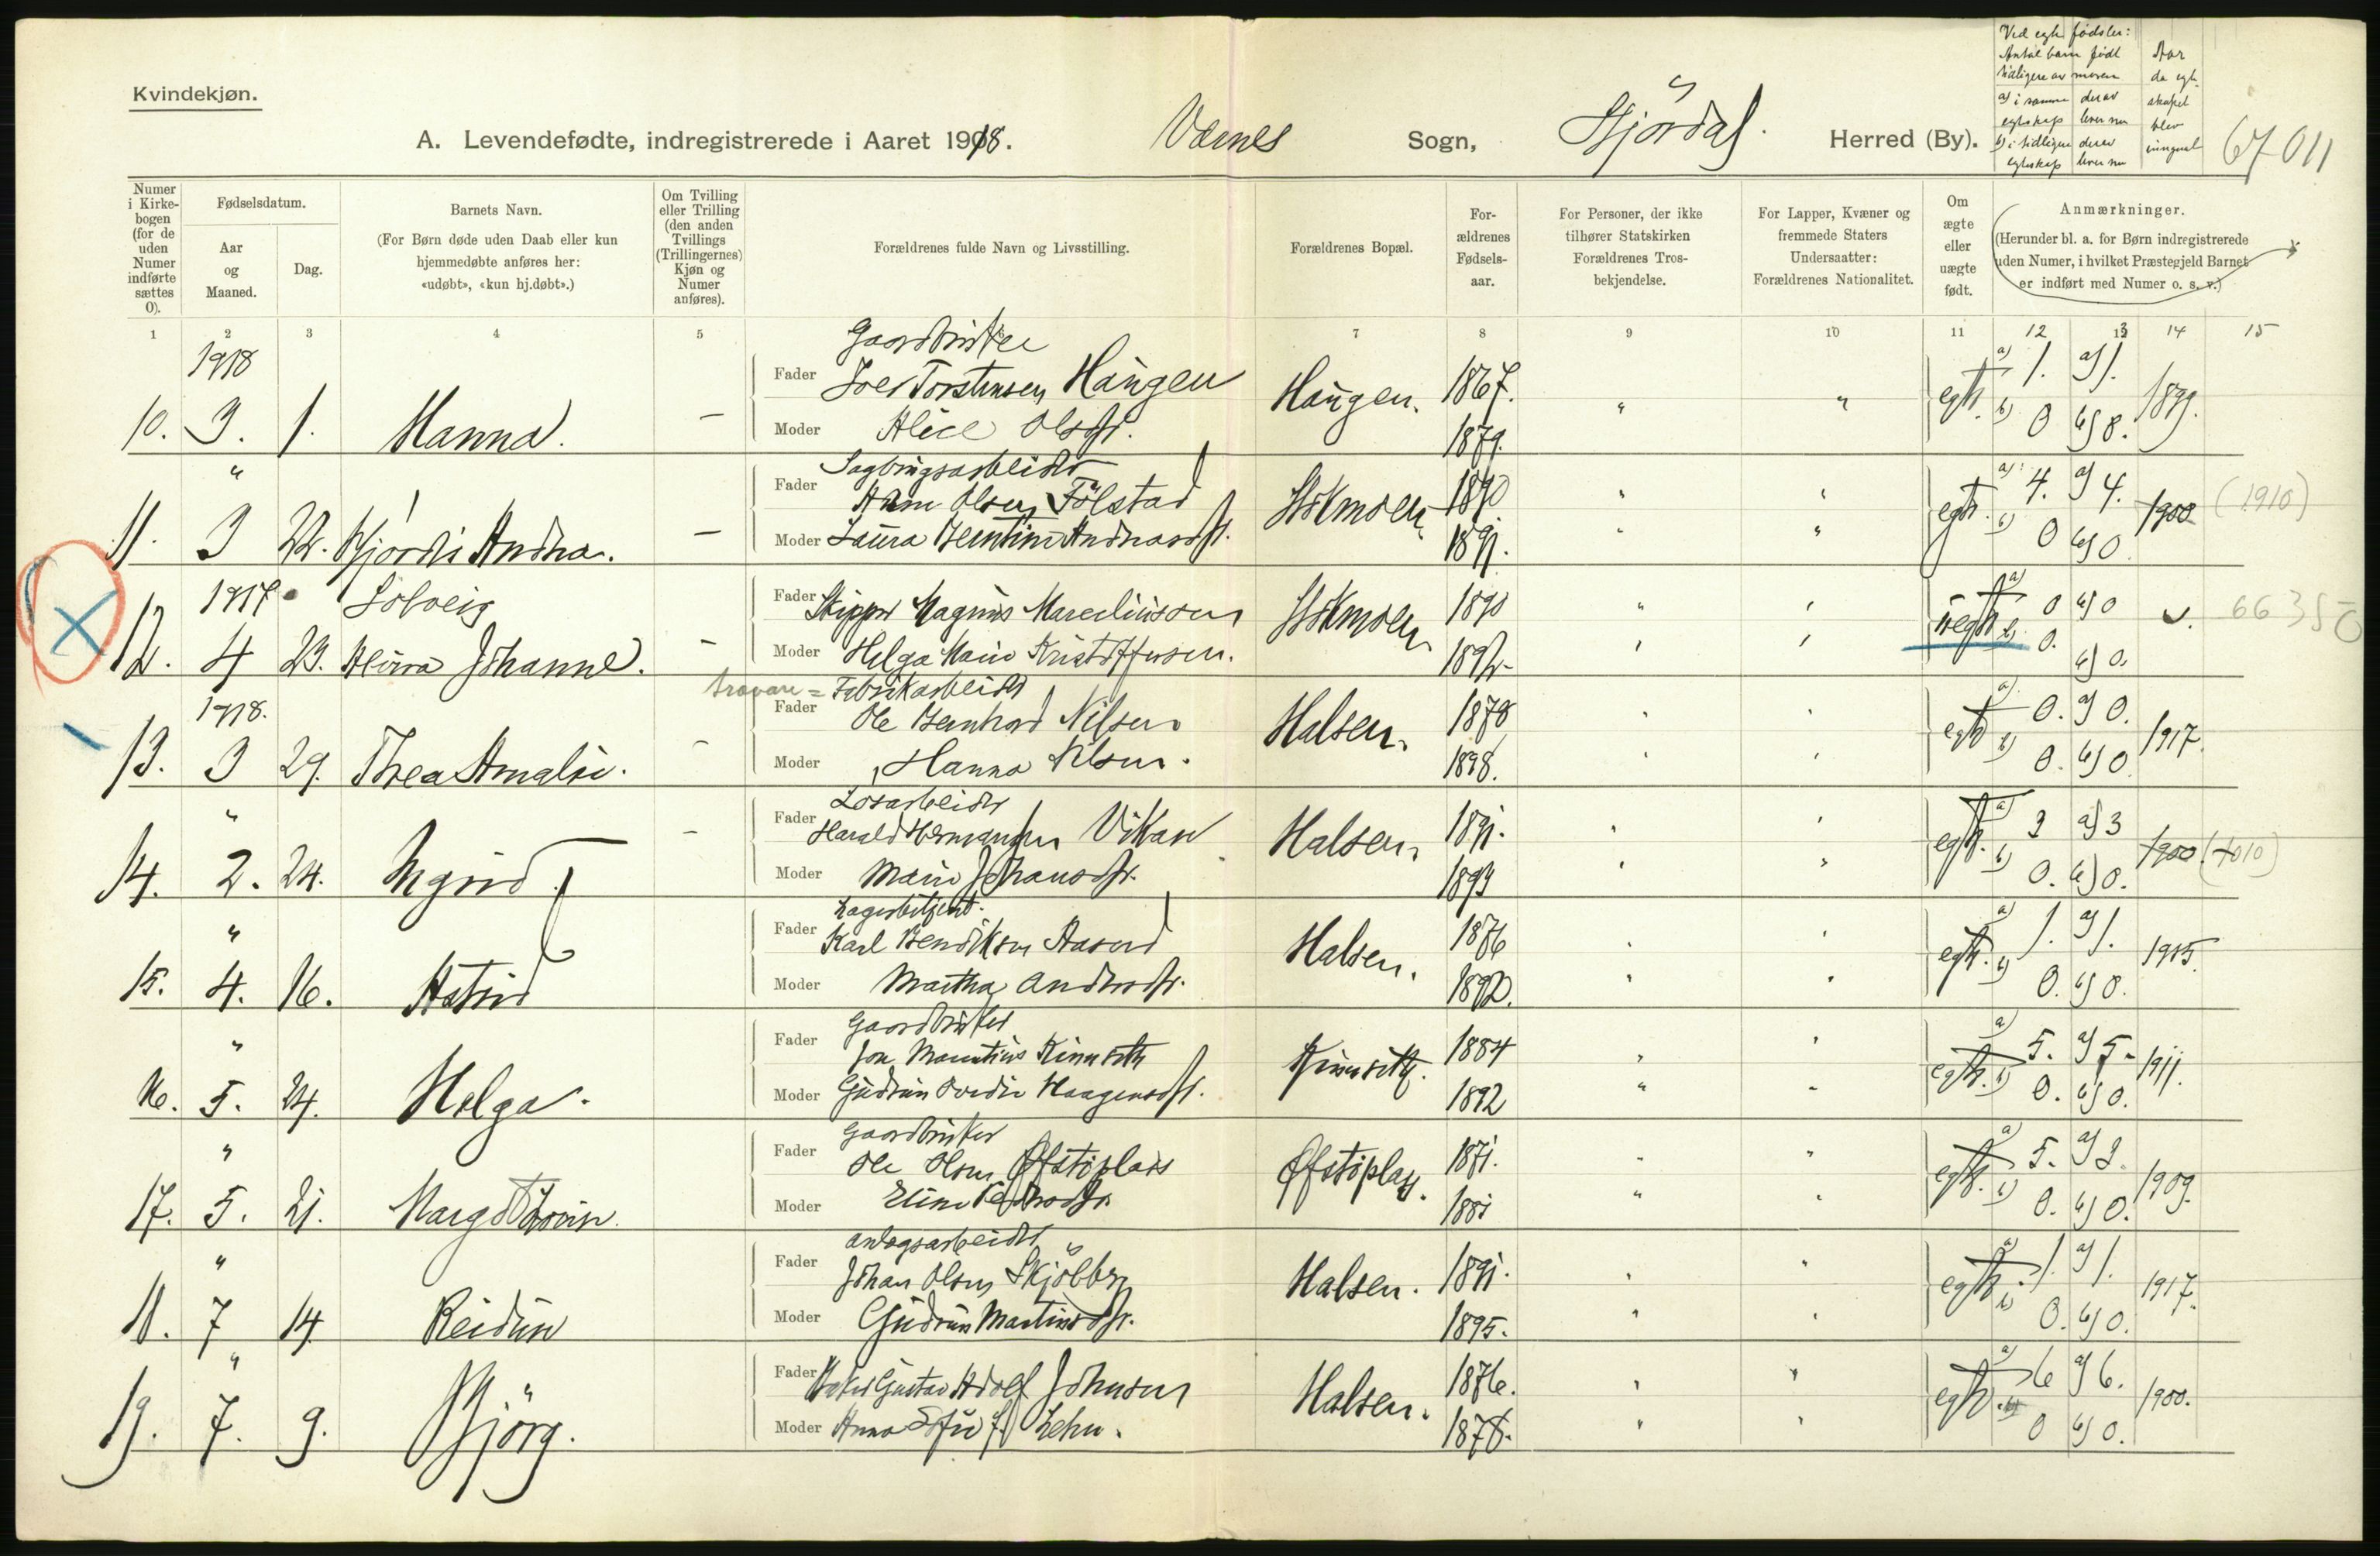 Kvindekjøn.
A. Levendefødte, indregistrerede i Aaret 1918. Værnes Sogn, Stjördal. Herred (By).
67 011
Ved egte fødsler:
Antal barn født
tidligere av moren
a) i samme egteskap
derav lever nu
b) i tidligere egteskap
derav lever nu
Aar
da egte-
skapet
blev
inngaat
Numer i Kirke-bogen (for de uden Numer indførte sættes 0).
Fødselsdatum.
Aar og Maaned.
Dag.
Barnets Navn.
(For Børn døde uden Daab eller kun hjemmedøbte anføres her: «udøbt», «kun hj.døbt».)
Om Tvilling eller Trilling (den anden Tvillings (Trillingernes) Kjøn og Numer anføres).
Forældrenes fulde Navn og Livsstilling.
Forældrenes Bopæl.
For-ældrenes Fødsels-aar.
For Personer, der ikke tilhører Statskirken Forældrenes Tros-bekjendelse.
For Lapper, Kvæner og fremmede Staters Undersaatter: Forældrenes Nationalitet.
Om ægte eller uægte født.
Anmærkninger.
(Herunder bl. a. for Børn indregistrerede uden Numer, i hvilket Præstegjeld Barnet er indført med Numer o. s. v.)
1 2 3 4 5 7 8 9 10 11 12 13 14 15
1918 Gaardbruker
Fader Torstensen Haugen Haugen. 1867. " " egte. a) 1. a) 1. 1899.
10. 3. 1. Hanna. — Moder Alice Olsdtr. 1879. b) 0 b) 0.
" Sagbrugsarbeider
Fader Olsen Fölstad Stokmoen 1890 " " egte. a) 4. a) 4. 1900 (1910)
11. 3 22. Hjördis Andrea. — Moder Laura Berntine Andreasdtr. 1891. " " b) 0 b) 0.
1917 Solveig Fader Skipper Magnus Marcelinsson Stokmoen 1890 " " uegte a) 0 a) 0 66350
12. 4 23. Johanne. — Moder Helga Marie Kristoffersen. 1892. " " b) 0. b) 0.
1918. travare = Fabrikarbeider
Fader Ole Bernhard Nilsen Halsen. 1878 " " egte a) 0. a) 0. 1917.
13. 3 29. Thea Amalie. — Moder Hanna Nilsen. 1898. " " b) 0. b) 0.
" Løsarbeider
Fader Harald Hermansen Vikan Halsen. 1891. " " egte. a) 3 a) 3 1900 (1010)
14. 2. 24. Ingrid. — Moder Marie Johansdtr. 1893 " " b) 0. b) 0.
" Lagerbetjent.
Fader Karl Bendiksen Aasend Halsen. 1876 " " egte. a) 1. a) 1. 1915.
15. 4. 16. Astrid Moder Martha Andersdtr. 1892. " " b) 0. b) 0.
" Gaardbruker
Fader Jon Mauritius Kinnseth Kinnseth. 1884 " " egte. a) 5. a) 5. 1911.
16. 5. 24. Helga. Moder Gudrun Haagensdtr. 1892 " " b) 0. b) 0.
" Gaardbruker
Fader Ole Olsen Öfstiplass Öfstiplass. 1871. " " egte. a) 5. a) 3. 1909.
17. 5. 21. Margot Moder Pedersdtr. 1881 " " b) 0. b) 0.
" Anlegsarbeider
Fader Johan Olsen Skjölberg Halsen. 1891. " " egte. a) 1. a) 1. 1917.
18. 7 14. Reidun Moder Gudrun Martinsdtr. 1895. " " b) 0. b) 0.
" Fader Baker Gustav Adolf Johnsen Halsen. 1876. " " egte. a) 6 a) 6. 1900.
19. 7. 9. Björg. Moder Anna Sofie f. Lehn. 1878. " " b) 0 b) 0.